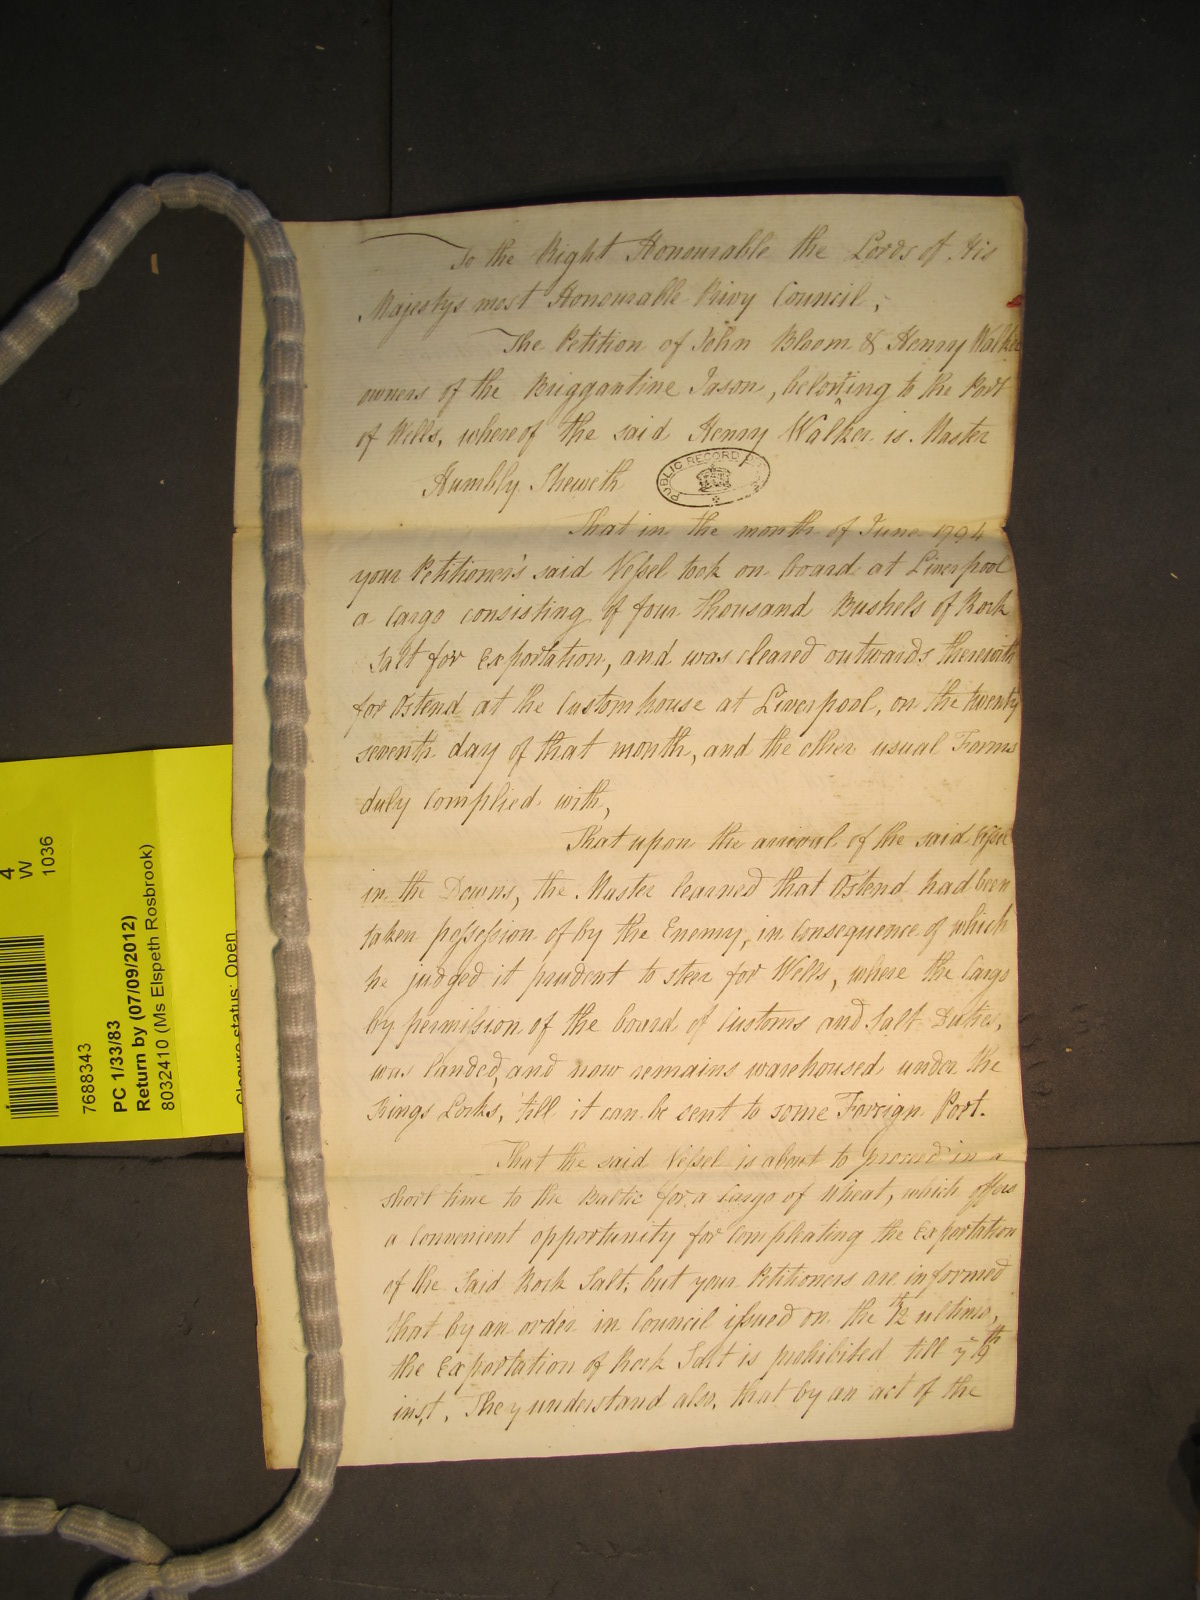 To the Right Honourable the Lords of His
Majestys most Honourable Privy Council,
The Petition of John Bloom & Henry Walker
owners of the Briggantine Jason, belonging to the Port
of Wells, whereof the said Henry Walker is Master
Humbly Sheweth
PUBLIC RECORD
That in the month of June 1794
your Petitioner's said Vessel took on board at Liverpool
a Cargo consisting of four thousand Bushels of Rock
Salt for Exportation, and was cleared outwards therewith
for Ostend at the Customhouse at Liverpool, on the twenty
seventh day of that month, and the other usual Forms
duly Complied with,
That upon the arrival of the said Vessel
in the Downs, the Master learned that Ostend had been
taken possession of by the Enemy, in Consequence of which
he judged it prudent to steer for Wells, where the Cargo
by permission of the board of Customs and Salt Duties,
was landed, and now remains warehoused under the
Kings Locks, till it can be sent to some Foreign Port.
That the said Vessel is about to proceed in a
short time to the Baltic for a Cargo of Wheat, which offers
a Convenient opportunity for Compleating the Exportation
of the Said Rock Salt, but your Petitioners are informed
that by an order in Council issued on the
ultimo,
the Exportation of Rock Salt is prohibited till ye 9th
inst, They understand also, that by an act of the
4
W
1036
7688343
PC 1/33/83
Return by (07/09/2012)
8032410 (Ms Elspeth Rosbrook)
Closure status: Open